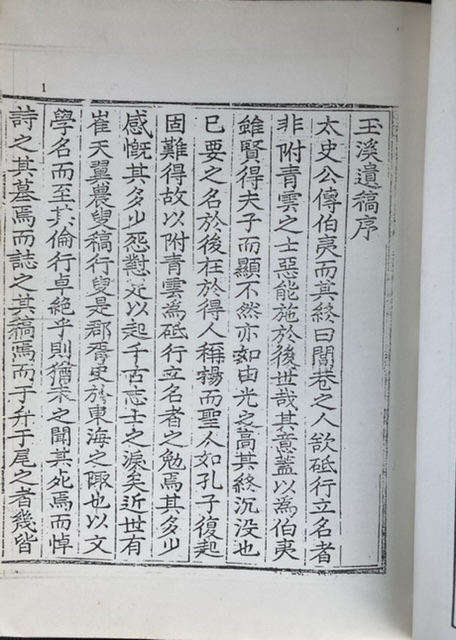 玉溪遺稿序
太史公傳伯夷而其終曰閭巷之人欲砥行立名者
非附青雲之士惡能施於後世哉其意蓋以為伯夷
雖賢得夫子而顯不然亦如由光之高其終沉没也
已要之名於後在於得人稱揚而聖人如孔子復起
固難得故以附青雲為砥行立名者之勉焉其多少
感慨其多少怨懟足以起千古志士之淚矣近世有
崔天翼農叟稿行叟是郡胥史於東海之陬也以文
學名而至其倫行卓絶乎則猶未之聞其死焉而悼
詩之其墓焉而誌之其稿焉而子弁子尾之者幾皆
1